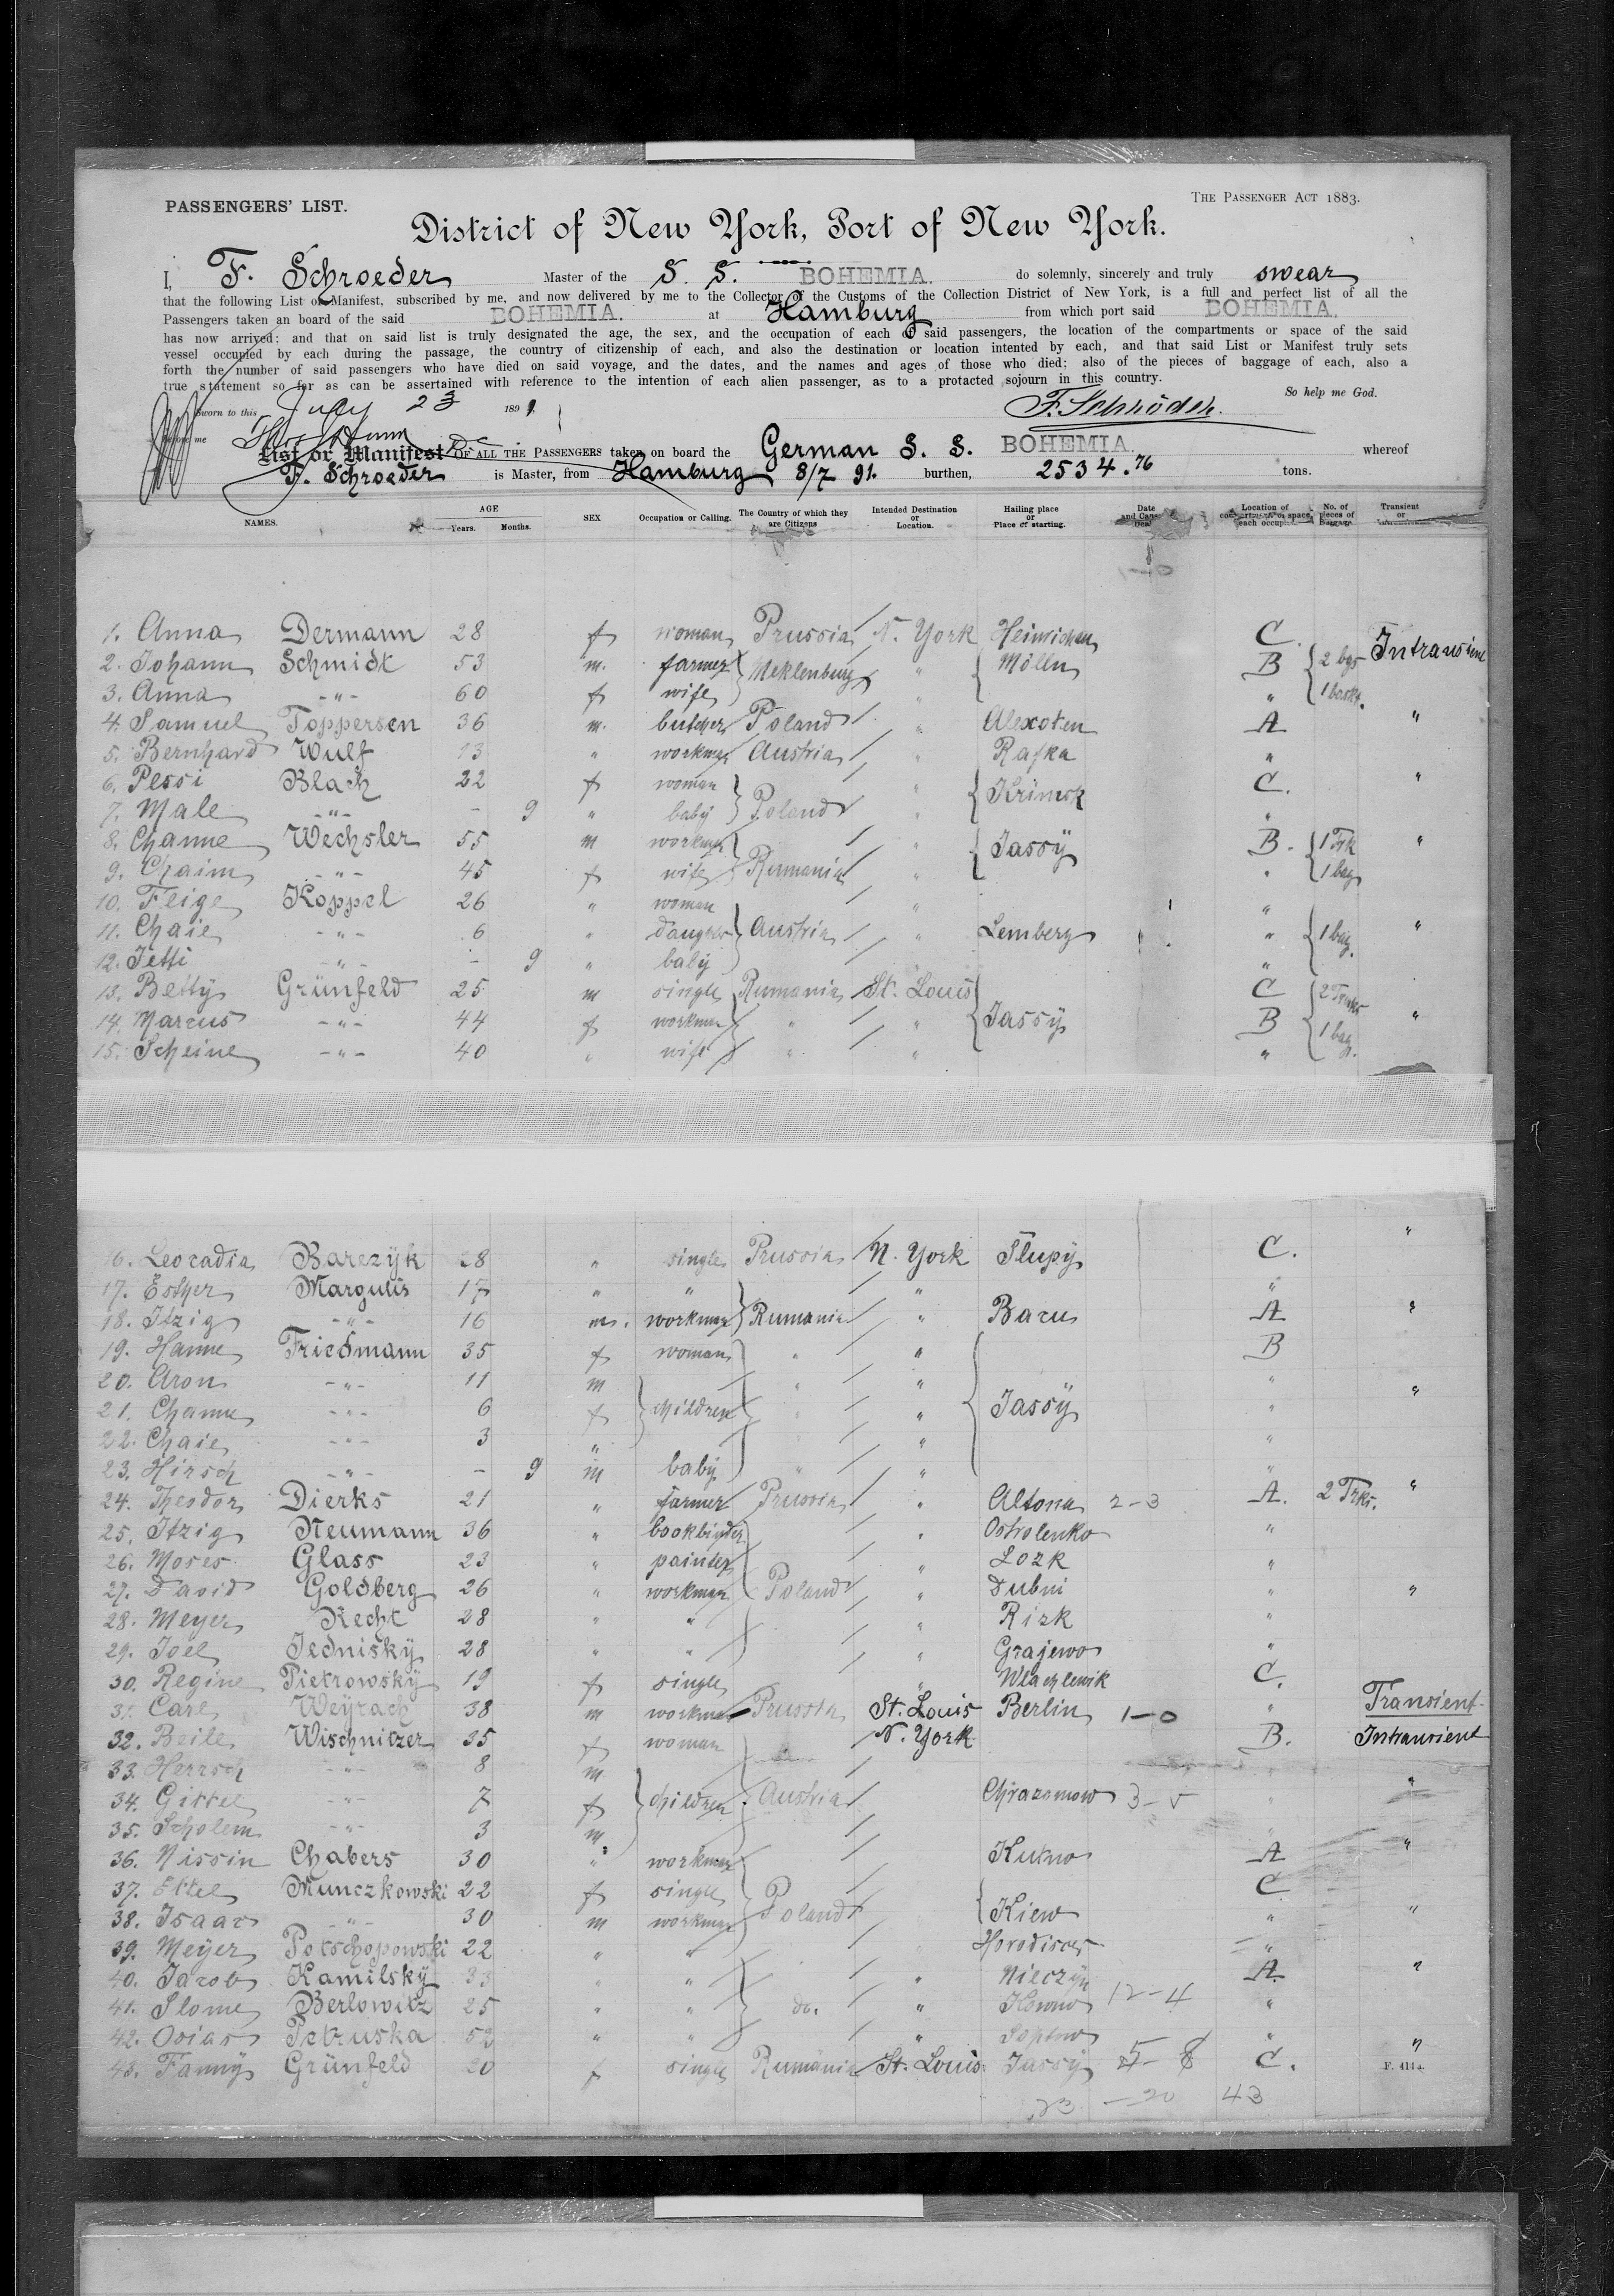 PASSENGERS' LIST.
THE PASSENGER ACT 1883.
District of New York, Port of New York.
I, F. Schroeder Master of the S. S. BOHEMIA. do solemnly, sincerely and truly swear
that the following List or Manifest, subscribed by me, and now delivered by me to the Collector of the Customs of the Collection District of New York, is a full and perfect list of all the
Passengers taken an board of the said BOHEMIA. at Hamburg from which port said BOHEMIA.
has now arrived; and that on said list is truly designated the age, the sex, and the occupation of each of said passengers, the location of the compartments or space of the said
vessel occupied by each during the passage, the country of citizenship of each, and also the destination or location intented by each, and that said List or Manifest truly sets
forth the number of said passengers who have died on said voyage, and the dates, and the names and ages of those who died; also of the pieces of baggage of each, also a
true statement so far as can be assertained with reference to the intention of each alien passenger, as to a protacted sojourn in this country.
So help me God.
Sworn to this July 23 1891
F. Schröder.
me
List or Manifest OF ALL THE PASSENGERS taken on board the German S. S. BOHEMIA. whereof
F. Schroeder is Master, from Hamburg 8/7 91. burthen, 2534.76 tons.
NAMES. AGE Years. Months. SEX Occupation or Calling. The Country of which they are Citizens Intended Destination or Location. Hailing place or Place of starting. Date Location of space each occupied No. of pieces of Baggage Transient or
1. Anna Dermann 28 f woman Prussia N. York C. Intransient
2. Johann Schmidt 53 m. farmer Meklenburg " Mölln B 2 bgs
3. Anna -"- 60 f wife " " 1 baskt.
4. Samuel Toppersen 36 m. butcher Poland " Alexoten A "
5. Bernhard Wulf 13 " workman Austria " Rafka "
6. Pessi Blach 22 f woman Poland " Krimsk C. "
7. Male -"- - 9 " baby " "
8. Channe Wechsler 55 m workman Rumania " Jassÿ B. 1 Trk "
9. Chaim -"- 45 f wife " " 1 bag
10. Feige Koppel 26 " woman Austria " Lemberg "
11. Chaie -"- 6 " daughter " " 1 bag. "
12. Jetti -"- - 9 " baby "
13. Betty Grünfeld 25 m single Rumania St. Louis Jassÿ C 2 Trnks
14. Marcus -"- 44 f workman " " B 1 bag. "
15. Scheine -"- 40 " wife " " "
16. Leocadia Barczÿk 28 " single Prussia N. York Slupÿ C. "
17. Esther Margulis 17 " " Rumania " Baru "
18. Itzig -"- 16 m. workman " A "
19. Hanne Friedmann 35 f woman " " Jassÿ B
20. Aron -"- 11 m children " " "
21. Channe -"- 6 f " " " "
22. Chaie -"- 3 " " "
23. Hirsch -"- - 9 m baby " " "
24. Theodor Dierks 21 " farmer Prussia " Altona 2-3 A. 2 Trks. "
25. Itzig Neumann 36 " bookbinder Poland " Ostrolenko "
26. Moses Glass 23 " painter " Lozk "
27. David Goldberg 26 " workman " Dubni " "
28. Meyer Recht 28 " " " Rizk "
29. Joel Jedniskÿ 28 " " " Grajewo "
30. Regine Pietrowskÿ 19 f single " C.
31. Carl Weyrach 38 m workman Prussia St. Louis Berlin 1-0 " Transient
32. Beile Wischnitzer 35 f woman Austria N. York B. Intransient
33. Herrsch -"- 8 m children
34. Gittel -"- 7 f Chrazanow 3-5 " "
35. Scholem -"- 3 m. "
36. Nissin Chabers 30 " workman Poland Kutno A "
37. Ettel Munczkowski 22 f single Kiew C
38. Isaac -"- 30 m workman " "
39. Meyer Potschopowski 22 " " "
40. Jacob Kamilskÿ 33 " " do. " A. "
41. Slome Berlowitz 25 " " " Kowno 12-4 "
42. Osias Petruska 52 " " " "
43. Fanny Grünfeld 20 f single Rumänia St. Louis Jassÿ 5-8 C. "
F. 414a.
23 - 20 43